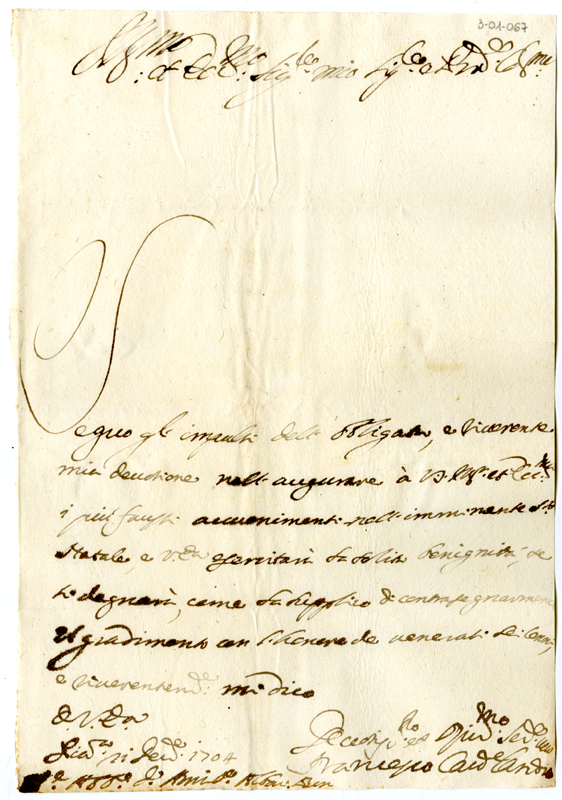 3-01-067
Ill.mo et Ecc.mo Sig.re mio Sig.re e P.ron Col.mo
Seguo gl' impulsi dell' obligata, e riverente
mia devotione nell' augurare à V.S. Ill.ma et Ecc.ma
i più fausti avvenimenti nell' imminente S.to
Natale, e V.Ecc.a esercitarà la solita benignità, se
si degnarà, come la supplico di contrasegnarmene
il gradimento con l' honore de venerati Suoi
e riverentem.te mi dico
D. V. Ecc.a
Xbre 1704
Francesco